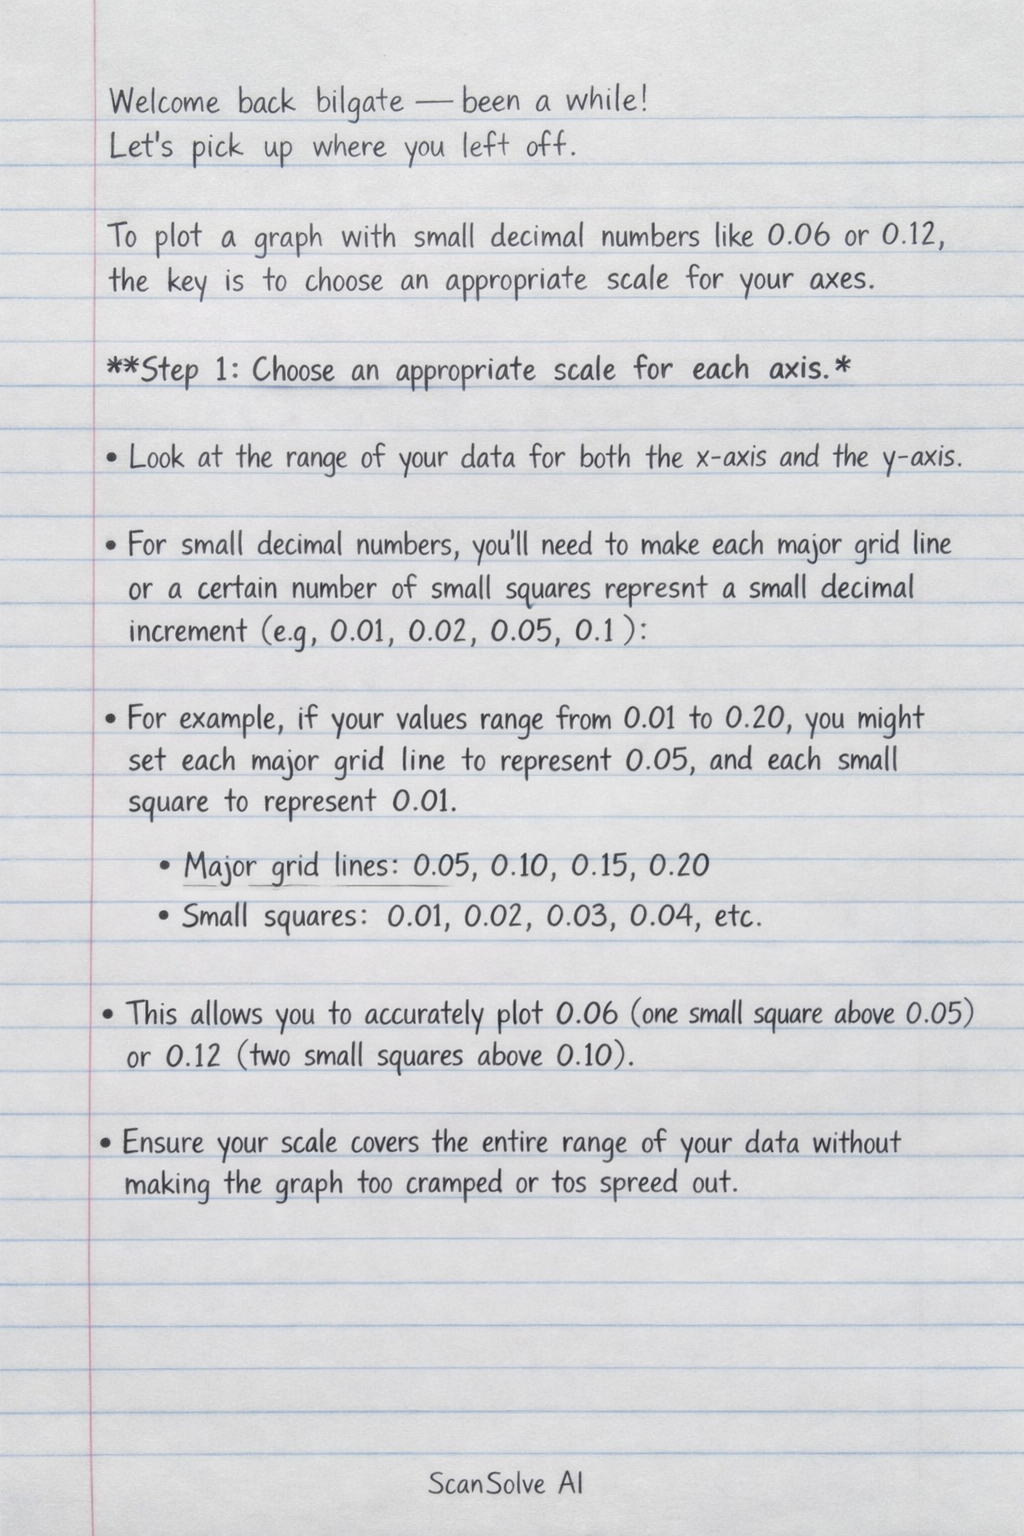 Welcome back bilgate — been a while!
Let's pick up where you left off.
To plot a graph with small decimal numbers like 0.06 or 0.12,
the key is to choose an appropriate scale for your axes.
**Step 1: Choose an appropriate scale for each axis.*
• Look at the range of your data for both the x-axis and the y-axis.
• For small decimal numbers, you'll need to make each major grid line
or a certain number of small squares represnt a small decimal
increment (e.g, 0.01, 0.02, 0.05, 0.1 ):
• For example, if your values range from 0.01 to 0.20, you might
set each major grid line to represent 0.05, and each small
square to represent 0.01.
• Major grid lines: 0.05, 0.10, 0.15, 0.20
• Small squares: 0.01, 0.02, 0.03, 0.04, etc.
• This allows you to accurately plot 0.06 (one small square above 0.05)
or 0.12 (two small squares above 0.10).
• Ensure your scale covers the entire range of your data without
making the graph too cramped or tos spreed out.
ScanSolve AI